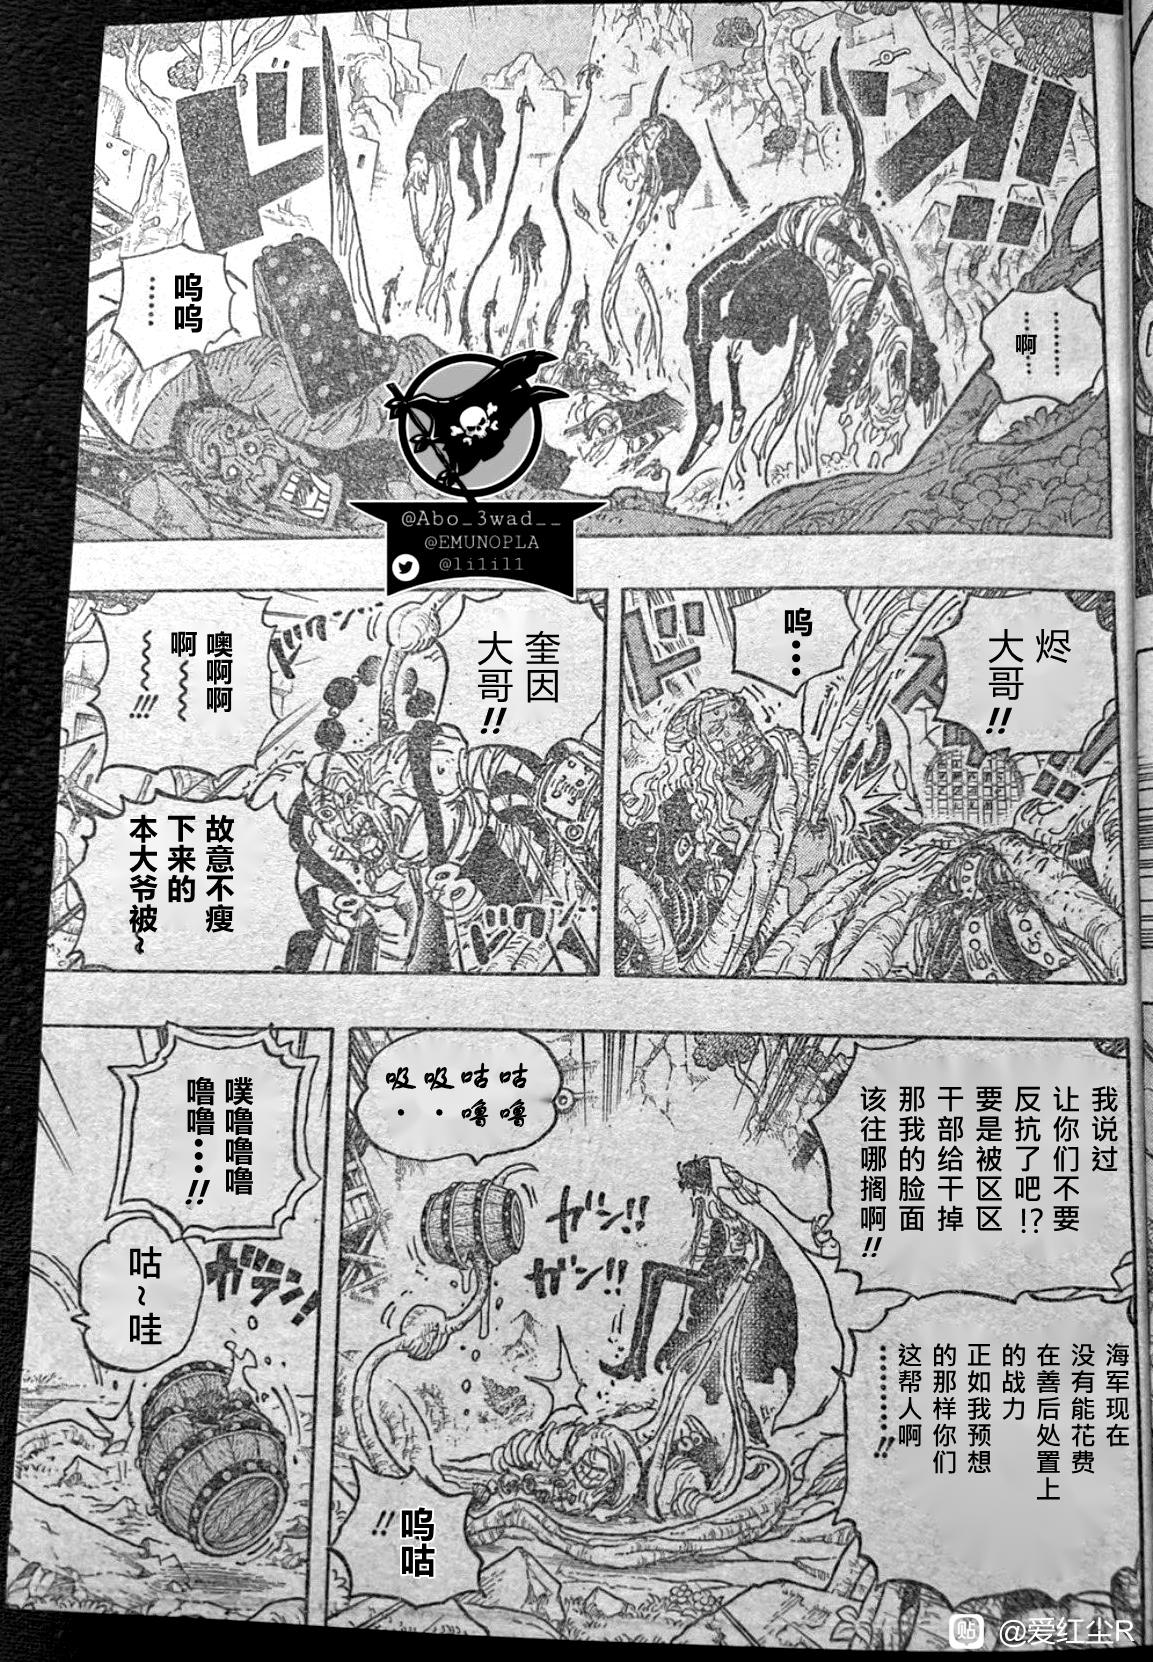 ド
ド
!!
……
啊
……
呜
呜
……
@Abo_3wad__
@EMUNOPLA
@li1il1
烬
大哥!!
呜…
ズ
ド
ド
!!
奎因
大哥!!
噢啊啊
啊~~
~~!!!
故意不瘦
下来的
本大爷被~
ドクン
我说过
让你们不要
反抗了吧!?
要是被区区
干部给干掉
那我的脸面
该往哪搁啊!!
海军现在
没有能花费
在善后处置上
的战力
正如我预想
的那样你们
这帮人啊
……!!
咕噜
咕噜
吸·
吸·
ガン!!
ガン!!
呜咕
!!
噗噜噜噜
噜噜…!!
咕~哇
ガラン!!
贴 @爱红尘R